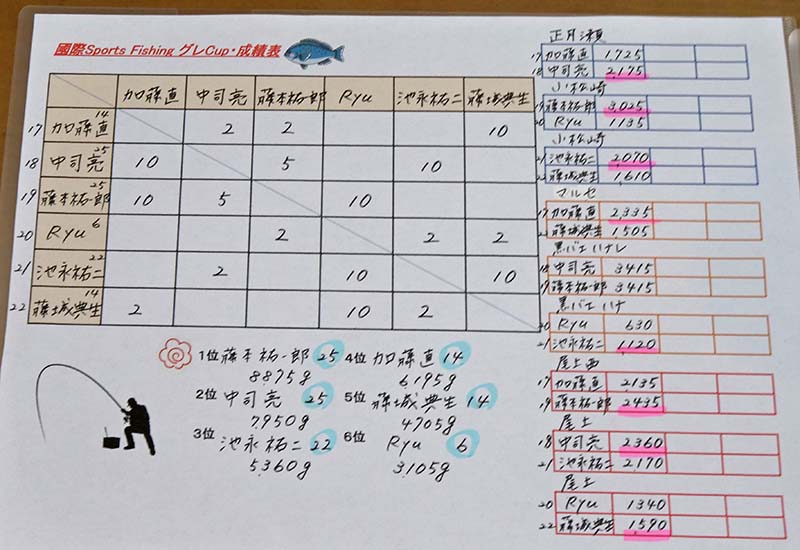 國際Sports Fishing グレCup・成績表
加藤直 中司亮 藤本祐一郎 Ryu 池永祐二 藤城典生
17 加藤直 14 2 2 10
18 中司亮 25 10 5 10
19 藤本祐一郎 25 10 5 10
20 Ryu 6 2 2 2
21 池永祐二 22 2 10 10
22 藤城典生 14 2 10 2
1位 藤本祐一郎 25
8875g
2位 中司亮 25
7950g
3位 池永祐二 22
5,360g
4位 加藤直 14
6195g
5位 藤城典生 14
4705g
6位 Ryu 6
3,105g
正月瀬
17 加藤直 1,725
18 中司亮 2,175
小松崎
19 藤本祐一郎 3,025
20 Ryu 1135
小松崎
21 池永祐二 2,070
22 藤城典生 1,610
マルセ
17 加藤直 2,335
22 藤城典生 1505
黒バエハナレ
18 中司亮 3415
19 藤本祐一郎 3415
黒バエハナ
20 Ryu 630
21 池永祐二 1,120
尾上西
17 加藤直 2135
19 藤本祐一郎 2435
尾上
18 中司亮 2360
21 池永祐二 2,170
尾上
20 Ryu 1340
22 藤城典生 1,590